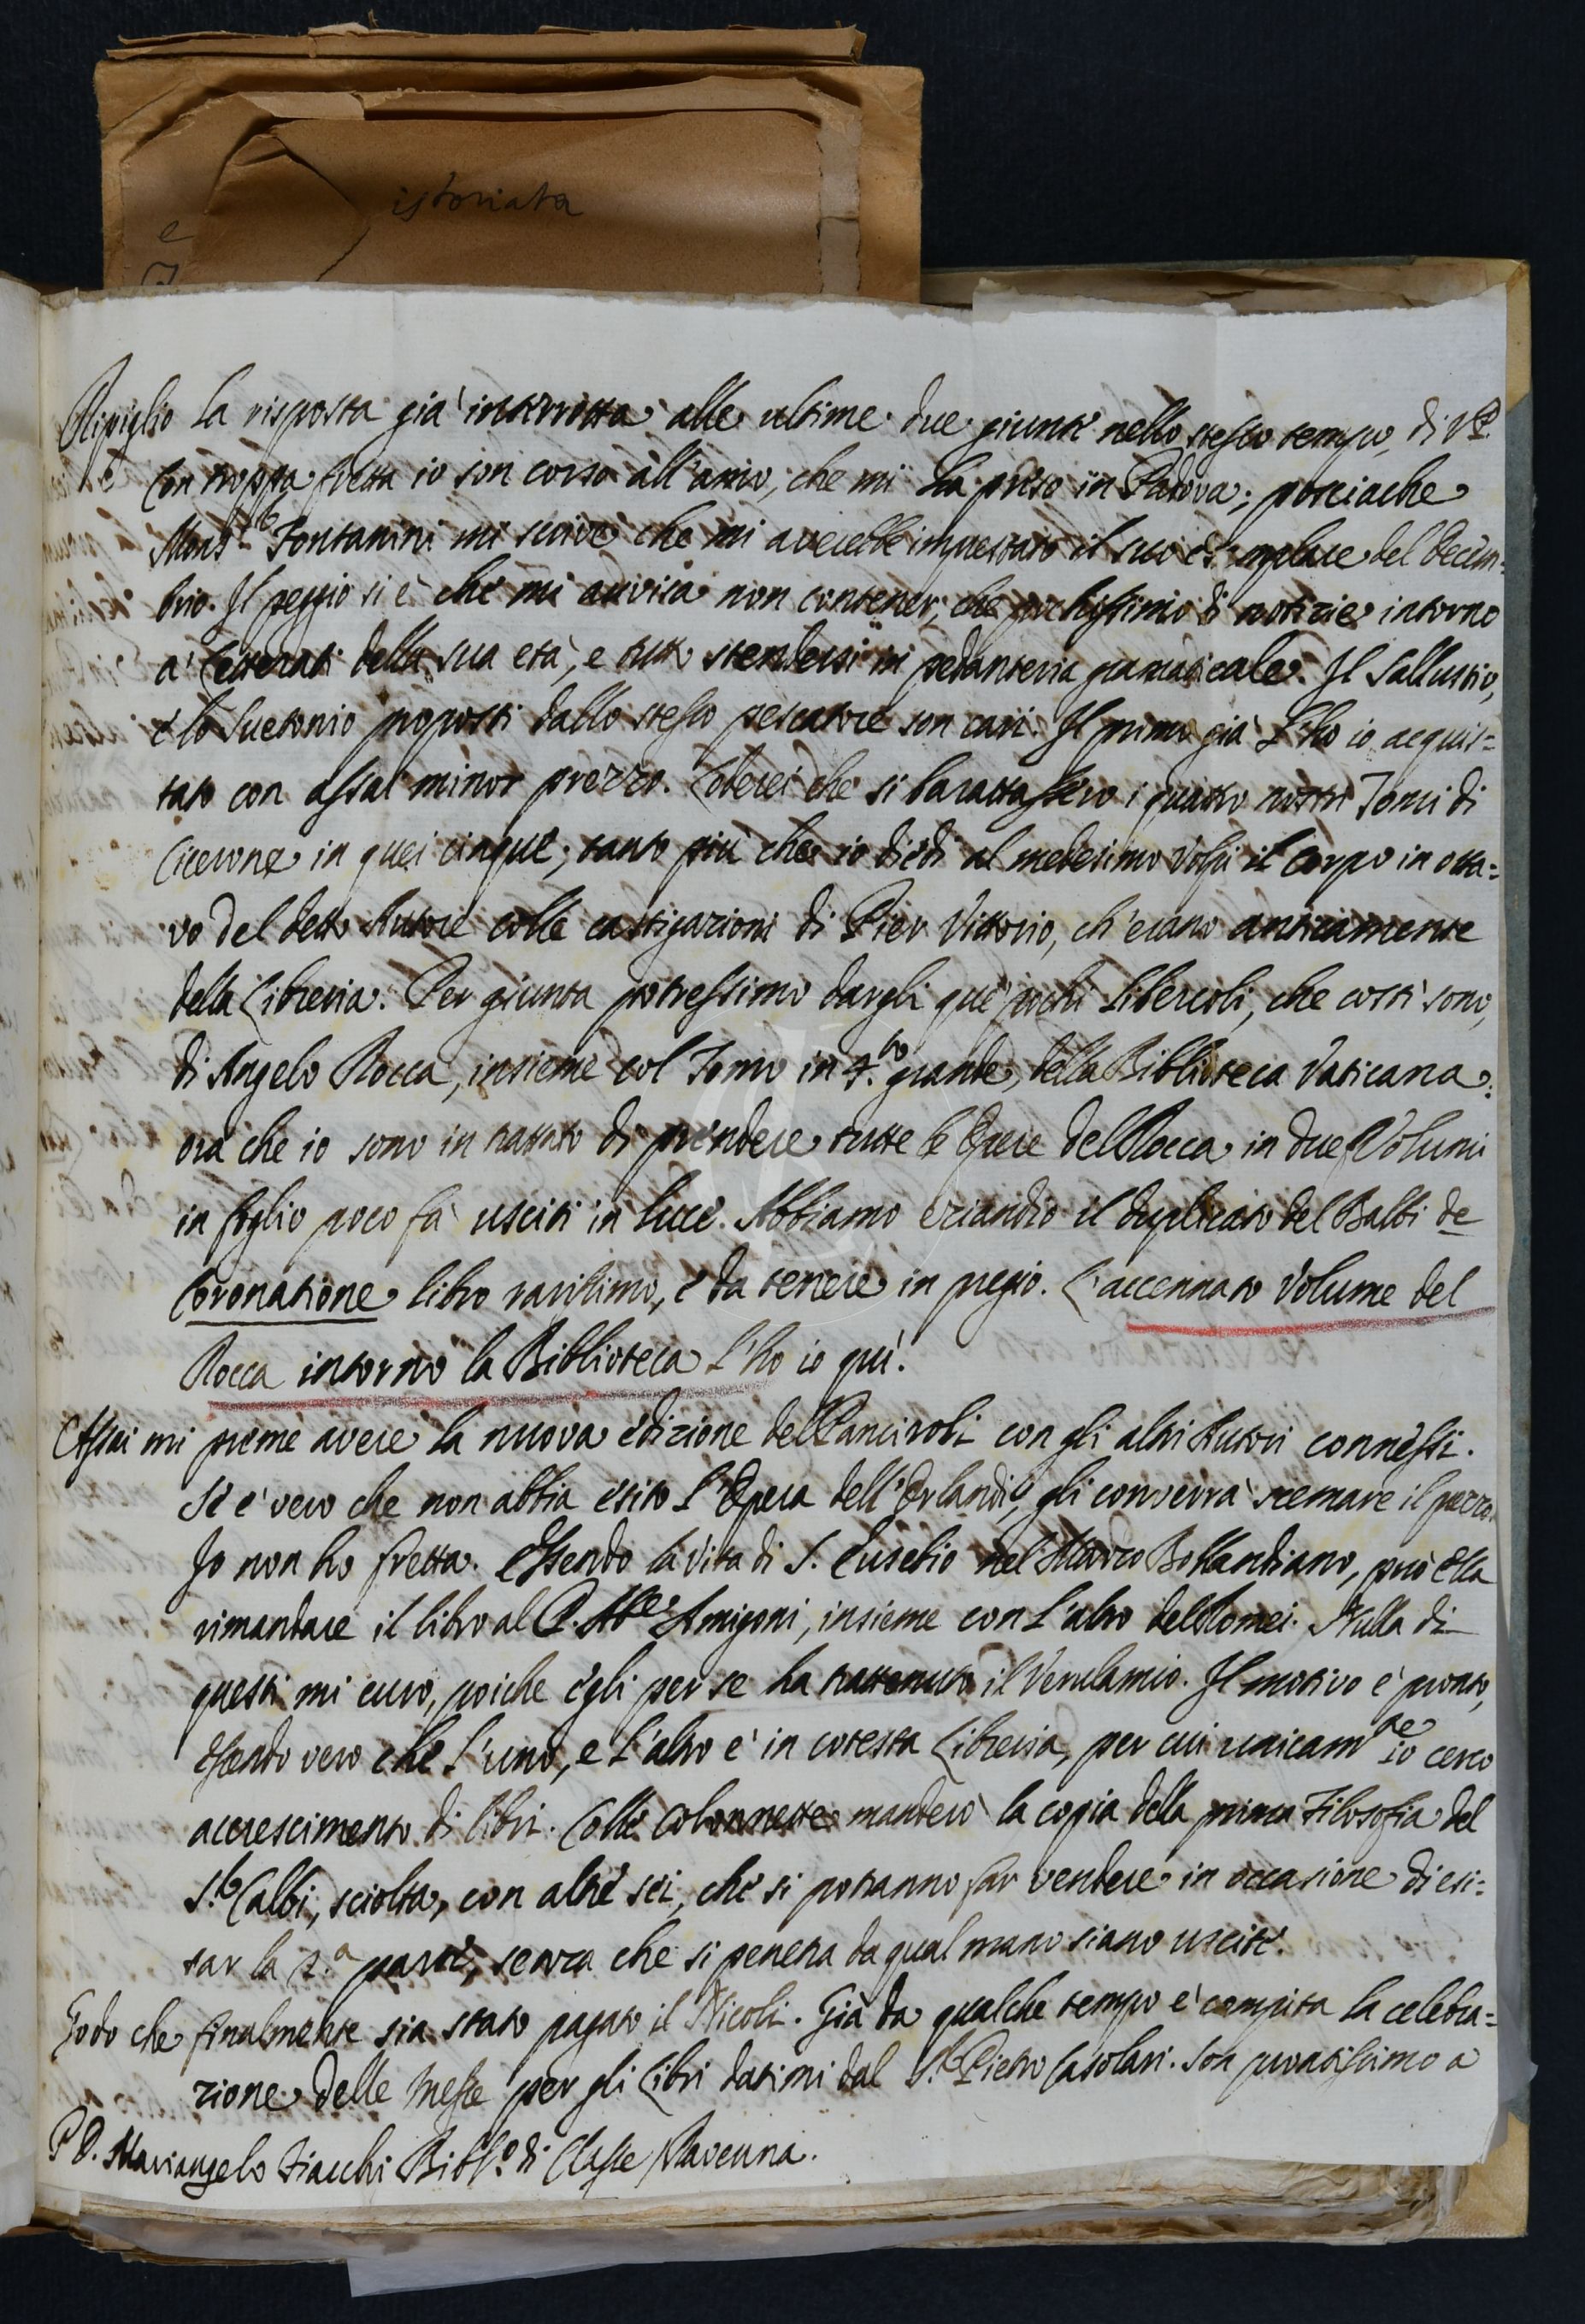 istoriata
e
Ripiglio la risposta già interrotta alle ultime due giunte nello stesso tempo, di V.P.
Con troppa fretta io son corso all'amo, che mi ha preso in Padova; posciache
Mons.r Fontanini mi scrive che mi averebbe imprestato il suo esemplare del Decem=
brio. Il peggio si è che mi avvisa non contener, che pochissimo di notizie intorno
a' Letterati della sua età, e tutto stendersi in pedanteria gramaticale. Il Sallustio,
e lo Suetonio proposti dallo stesso pescatore son cari. Il primo già l'ho io acquis=
tato con assai minor prezzo. Loderei che si barattassero i quattro nostri Tomi di
Cicerone in quei cinque; tanto più che io diedi al medesimo Volpi il corpo in otta=
vo del detto Autore colle castigazioni di Pier Vittorio, ch'erano anticamente
della Libreria. Per giunta potressimo dargli que' pochi libercoli, che costì sono,
di Angelo Rocca, insieme col Tomo in 4.to grande, della Biblioteca Vaticana:
ora che io sono in trattato di prendere tutte le Opere del Rocca in due Volumi
in foglio poco fà usciti in luce. Abbiamo eziandio il duplicato del Balbi de
Coronatione libro rarissimo, e da tenere in pregio. L'accennato Volume del
Rocca intorno la Biblioteca l'ho io quì.
Assai mi preme avere la nuova edizione del Panciroli con gli altri Autori connessi.
Se è vero che non abbia esito l'Opera dell'Orlandi, gli converrà scemare il prezzo.
Io non ho fretta. Essendo la Vita di S. Eusebio nel Marzo Bollandiano, può Ella
rimandare il libro al P. Ab.e Amigoni, insieme con l'altro del Tomei. Nulla di
questi mi curo, poiche egli per se ha trattenuto il Verulamio. Il motivo è pronto,
essendo vero che l'uno, e l'altro è in cotesta Libreria, per cui unicam.te io cerco
accrescimento di libri. Colle Colonnette manderò la copia della prima Filosofia del
S.r Calbi, sciolta, con altre sei, che si potranno far vendere in occasione di esi=
tar la 2.a parte, senza che si penetra da qual mano siano uscite.
Godo che finalmente sia stato pagato il Nicoli. Già da qualche tempo è compita la celebra=
zione delle Messe per gli Libri datimi dal S.r Pietro Casolari. Son prontissimo a
P. D. Mariangelo Fiacchi Bibl.o di Classe Ravenna.